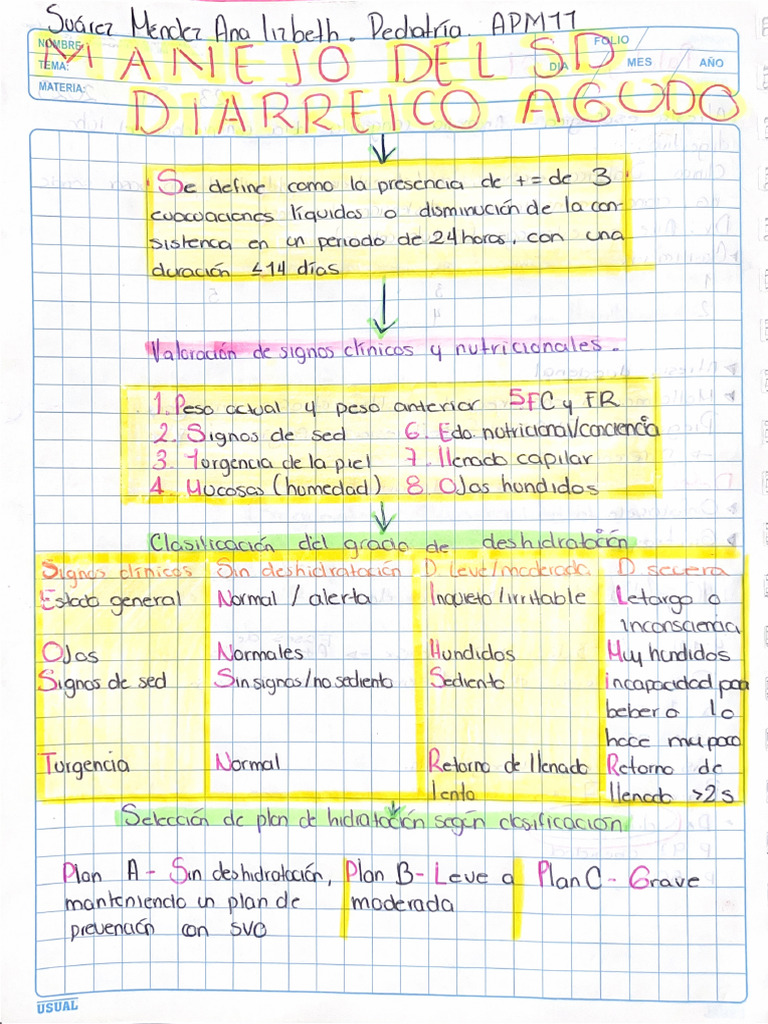 Suárez Méndez Ana lizbeth. Pediatría. APM11
NOMBRE:
FOLIO
TEMA:
DIA
MES
AÑO
MATERIA:
MANEJO DEL SD
DIARREICO AGUDO
Se define como la presencia de += de 3
evacuaciones líquidas o disminución de la con-
sistenca en un periodo de 24 horas, con una
duración ≤14 días
Valoración de signos clínicos y nutricionales.
1. Peso actual y peso anterior 5 FC y FR
2. Signos de sed 6. Edo nutricional/conciencia
3. Turgencia de la piel 7. llenado capilar
4. Mucosas (humedad) 8. Ojos hundidos
Clasificación del grado de deshidratación
Signos clínicos Sin deshidratación D leve/moderada D severa
Estado general Normal / alerta Inquieto / irritable Letargo o
inconsciencia
Ojos Normales Hundidos Muy hundidos
Signos de sed Sin signos/no sediento Sediento incapacidad para
beber o lo
hace mu poco
Turgencia Normal Retorno de llenado Retorno de
lento llenado >2s
Selección de plan de hidratación según clasificación
Plan A - Sin deshidratación, Plan B - Leve a Plan C - Grave
manteniendo un plan de moderada
prevención con SVO
USUAL